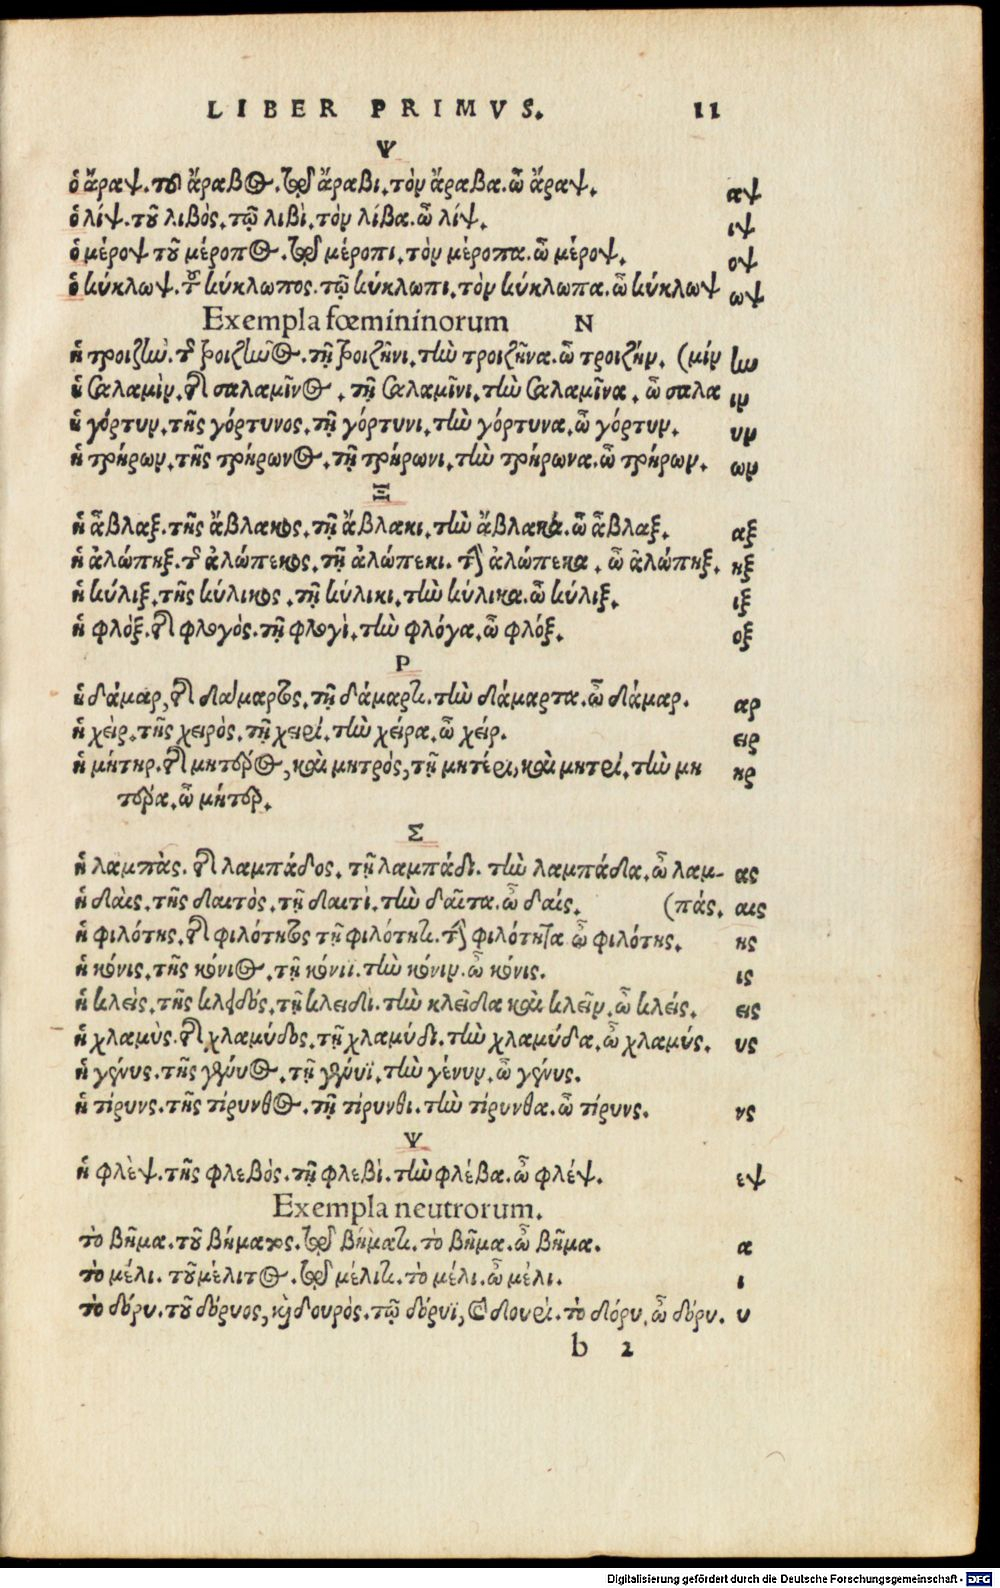 LIBER PRIMVS. 11
Ψ
ὁ ἄραψ. τοῦ ἄραβος. τῷ ἄραβι. τὸν ἄραβα. ὦ ἄραψ. αψ
ὁ λίψ. τοῦ λιβὸς. τῷ λιβὶ. τὸν λίβα. ὦ λίψ. ιψ
ὁ μέροψ τοῦ μέροπος. τῷ μέροπι. τὸν μέροπα. ὦ μέροψ. οψ
ὁ κύκλωψ. τοῦ κύκλωπος. τῷ κύκλωπι. τὸν κύκλωπα. ὦ κύκλωψ ωψ
Exempla fœmininorum N
ἡ τροιζὴν. τῆς τροιζῆνος. τῇ τροιζῆνι. τὴν τροιζῆνα. ὦ τροιζήν. (μίν ην
ἡ σαλαμὶν. τῆς σαλαμῖνος. τῇ σαλαμῖνι. τὴν σαλαμῖνα. ὦ σαλα ιν
ἡ γόρτυν. τῆς γόρτυνος. τῇ γόρτυνι. τὴν γόρτυνα. ὦ γόρτυν. υν
ἡ τρήρων. τῆς τρήρωνος. τῇ τρήρωνι. τὴν τρήρωνα. ὦ τρήρων. ων
Ξ
ἡ ἄβλαξ. τῆς ἄβλακος. τῇ ἄβλακι. τὴν ἄβλακα. ὦ ἄβλαξ. αξ
ἡ ἀλώπηξ. τῆς ἀλώπεκος. τῇ ἀλώπεκι. τὴν ἀλώπεκα. ὦ ἀλώπηξ. ηξ
ἡ κύλιξ. τῆς κύλικος. τῇ κύλικι. τὴν κύλικα. ὦ κύλιξ. ιξ
ἡ φλὸξ. τῆς φλογὸς. τῇ φλογὶ. τὴν φλόγα. ὦ φλόξ. οξ
Ρ
ἡ δάμαρ, τῆς δάμαρτος. τῇ δάμαρτι. τὴν δάμαρτα. ὦ δάμαρ. αρ
ἡ χεὶρ. τῆς χειρὸς. τῇ χειρί. τὴν χείρα. ὦ χείρ. ειρ
ἡ μήτηρ. τῆς μητέρος, καὶ μητρὸς, τῇ μητέρι, καὶ μητρί. τὴν μη ηρ
τέρα. ὦ μήτερ.
Σ
ἡ λαμπὰς. τῆς λαμπάδος. τῇ λαμπάδι. τὴν λαμπάδα. ὦ λαμ- ας
ἡ δαὶς. τῆς δαιτὸς. τῇ δαιτὶ. τὴν δαῖτα. ὦ δαίς. (πάς. αις
ἡ φιλότης. τῆς φιλότητος τῇ φιλότητι. τὴν φιλότητα ὦ φιλότης. ης
ἡ κόνις. τῆς κόνιος. τῇ κόνιϊ. τὴν κόνιν. ὦ κόνις. ις
ἡ κλεὶς. τῆς κλειδός. τῇ κλειδὶ. τὴν κλεῖδα καὶ κλεῖν. ὦ κλείς. εις
ἡ χλαμὺς. τῆς χλαμύδος. τῇ χλαμύδι. τὴν χλαμύδα. ὦ χλαμύς. υς
ἡ γένυς. τῆς γένυος. τῇ γένυϊ. τὴν γένυν. ὦ γένυς.
ἡ τίρυνς. τῆς τίρυνθος. τῇ τίρυνθι. τὴν τίρυνθα. ὦ τίρυνς. νς
Ψ
ἡ φλὲψ. τῆς φλεβὸς. τῇ φλεβὶ. τὴν φλέβα. ὦ φλέψ. εψ
Exempla neutrorum.
τὸ βῆμα. τοῦ βήματος. τῷ βήματι. τὸ βῆμα. ὦ βῆμα. α
τὸ μέλι. τοῦ μέλιτος. τῷ μέλιτι. τὸ μέλι. ὦ μέλι. ι
τὸ δόρυ. τοῦ δόρυος, καὶ δουρὸς. τῷ δόρυϊ, καὶ δουρὶ. τὸ δόρυ. ὦ δόρυ. υ
b 2
Digitalisierung gefördert durch die Deutsche Forschungsgemeinschaft - DFG